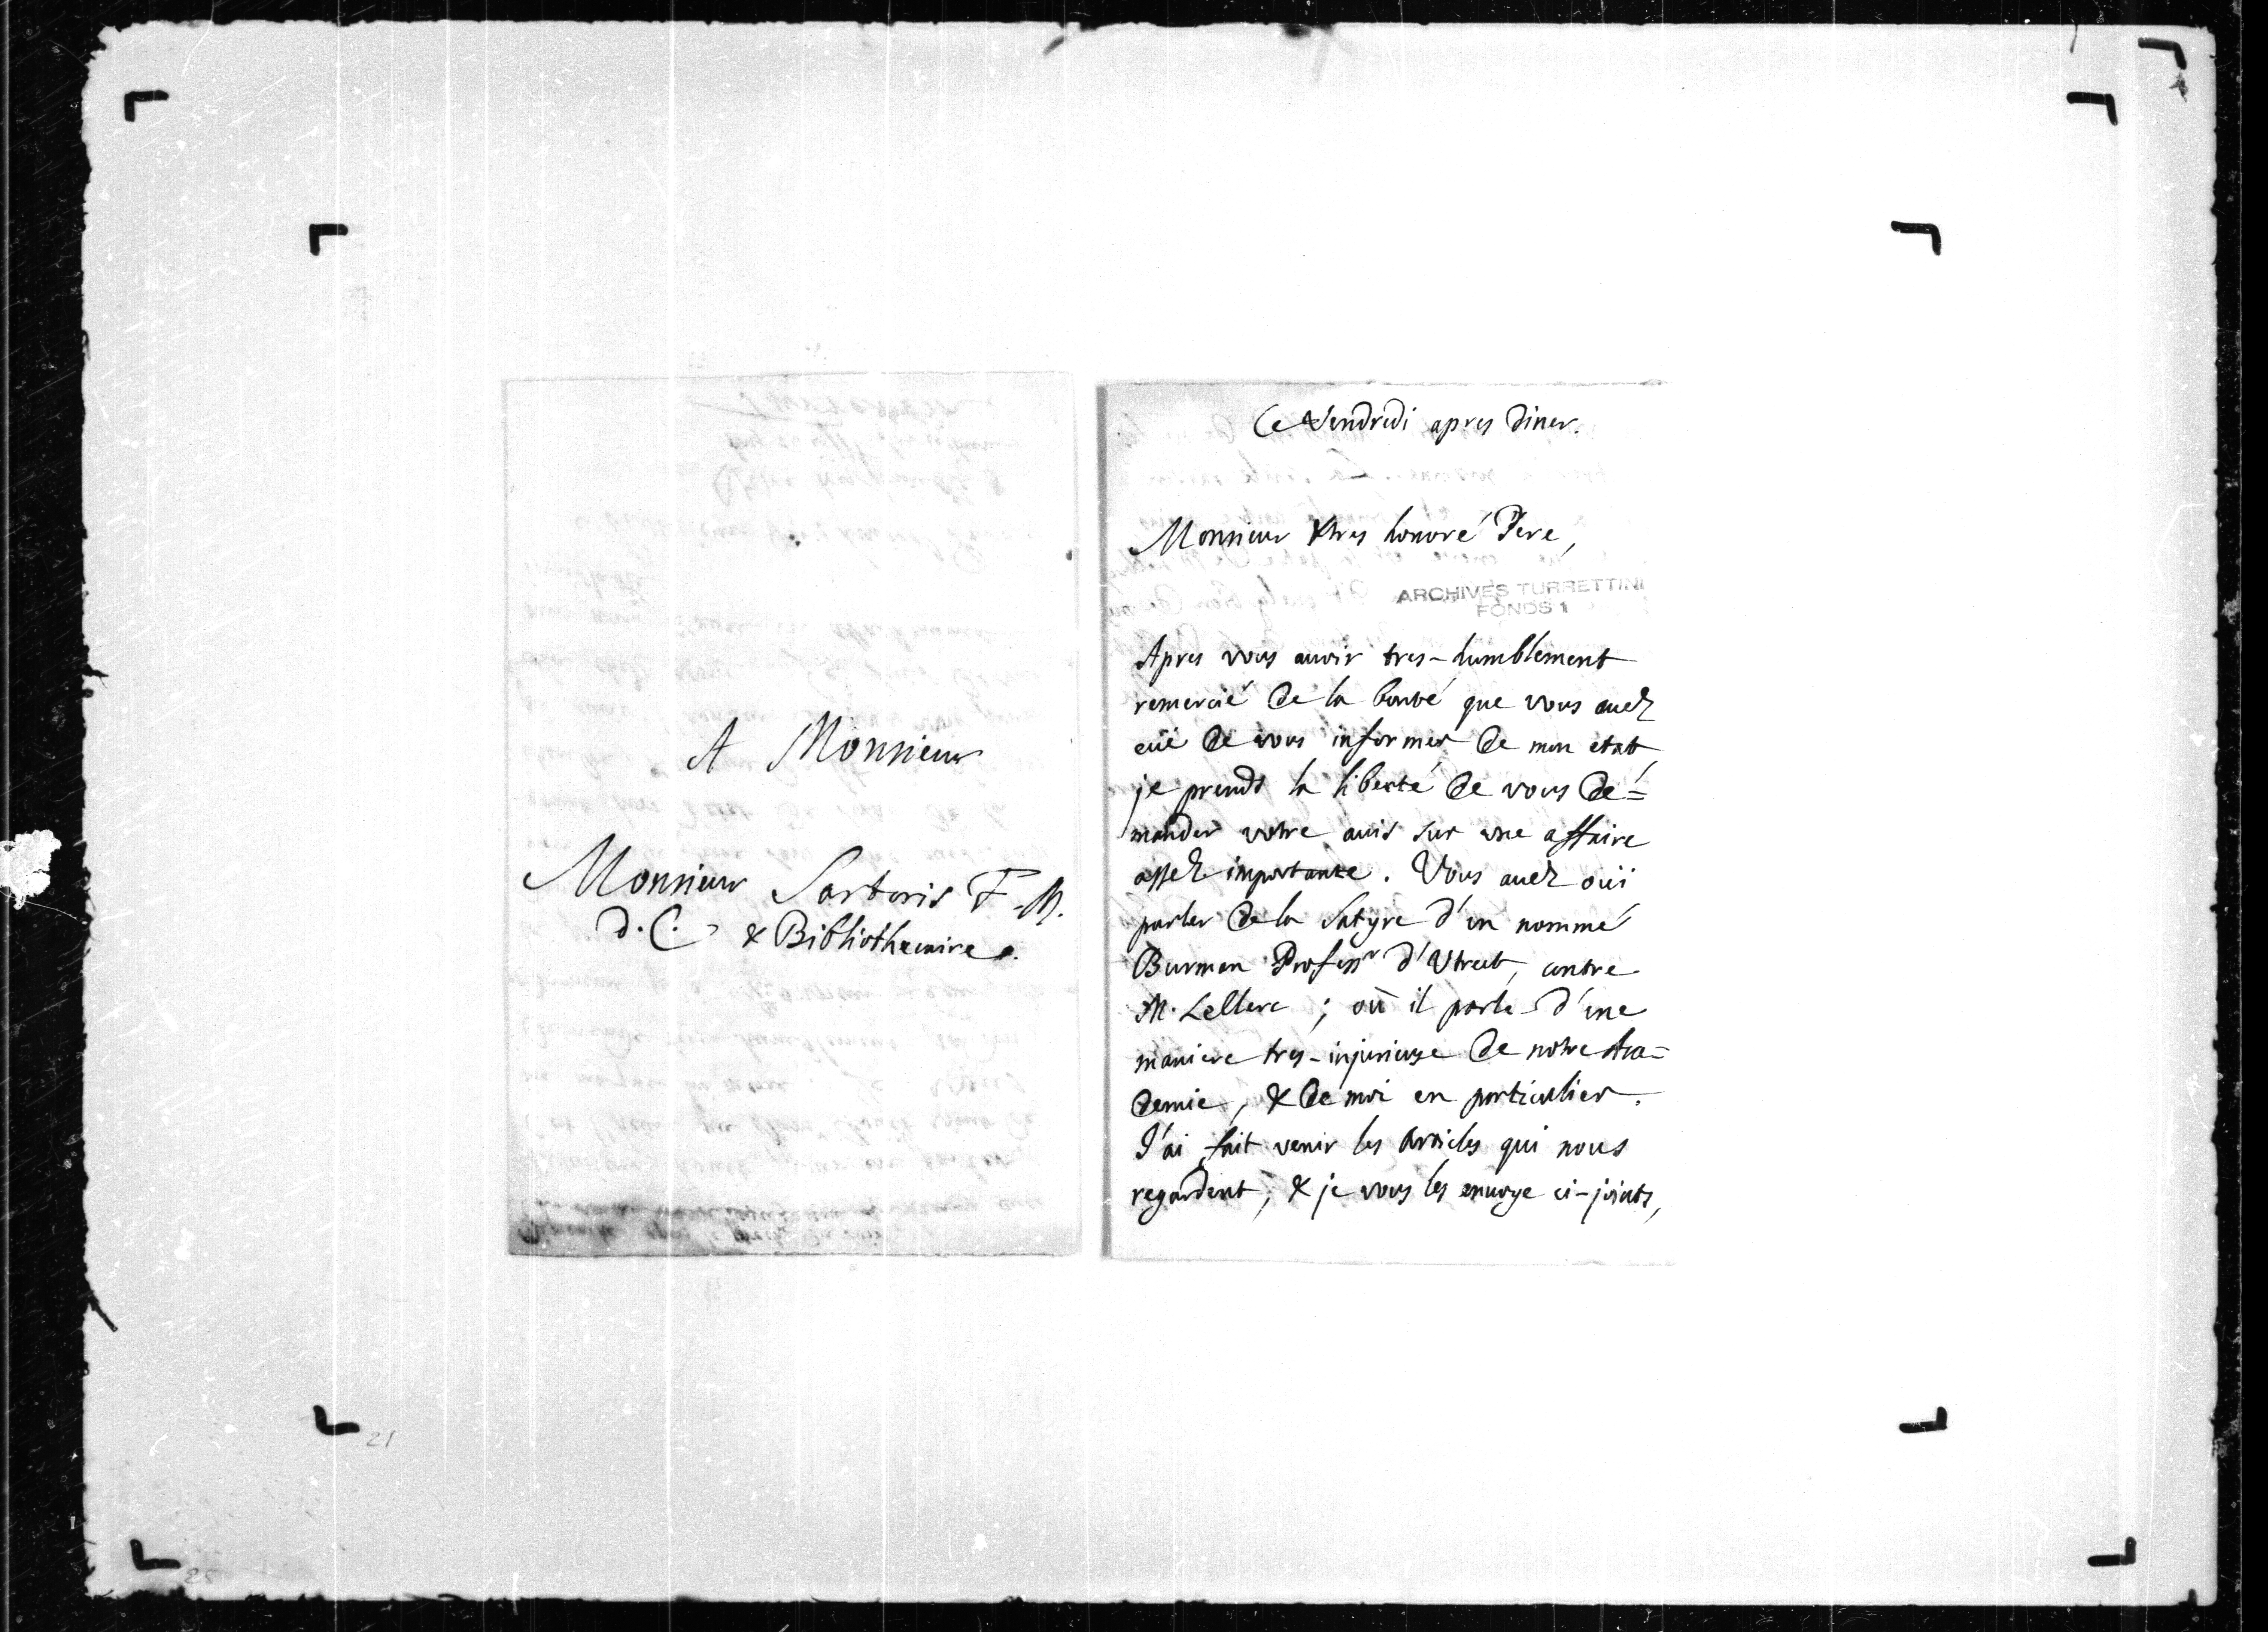 A Monsieur
Monsieur Sartoris F. M.
d. C. & Bibliothecaire.
Ce Vendredi apres diner.
Monsieur & tres honoré Pere,
ARCHIVES TURRETTINI
FONDS 1
Apres vous avoir tres-humblement
remercié de la bonté que vous auez
eüe de vous informer de mon etat,
je prends la liberté de vous de=
mander votre auis sur une affaire
assez importante. Vous auez ouï
parler de la Satyre d'un nommé
Burman Professr d'Utrect, contre
M. LeClerc ; où il parle d'une
maniere tres-injurieuse de notre Aca=
demie, & de moi en particulier.
J'ai fait venir les Articles qui nous
regardent, & je vous les enuoye ci-joints,
21
25